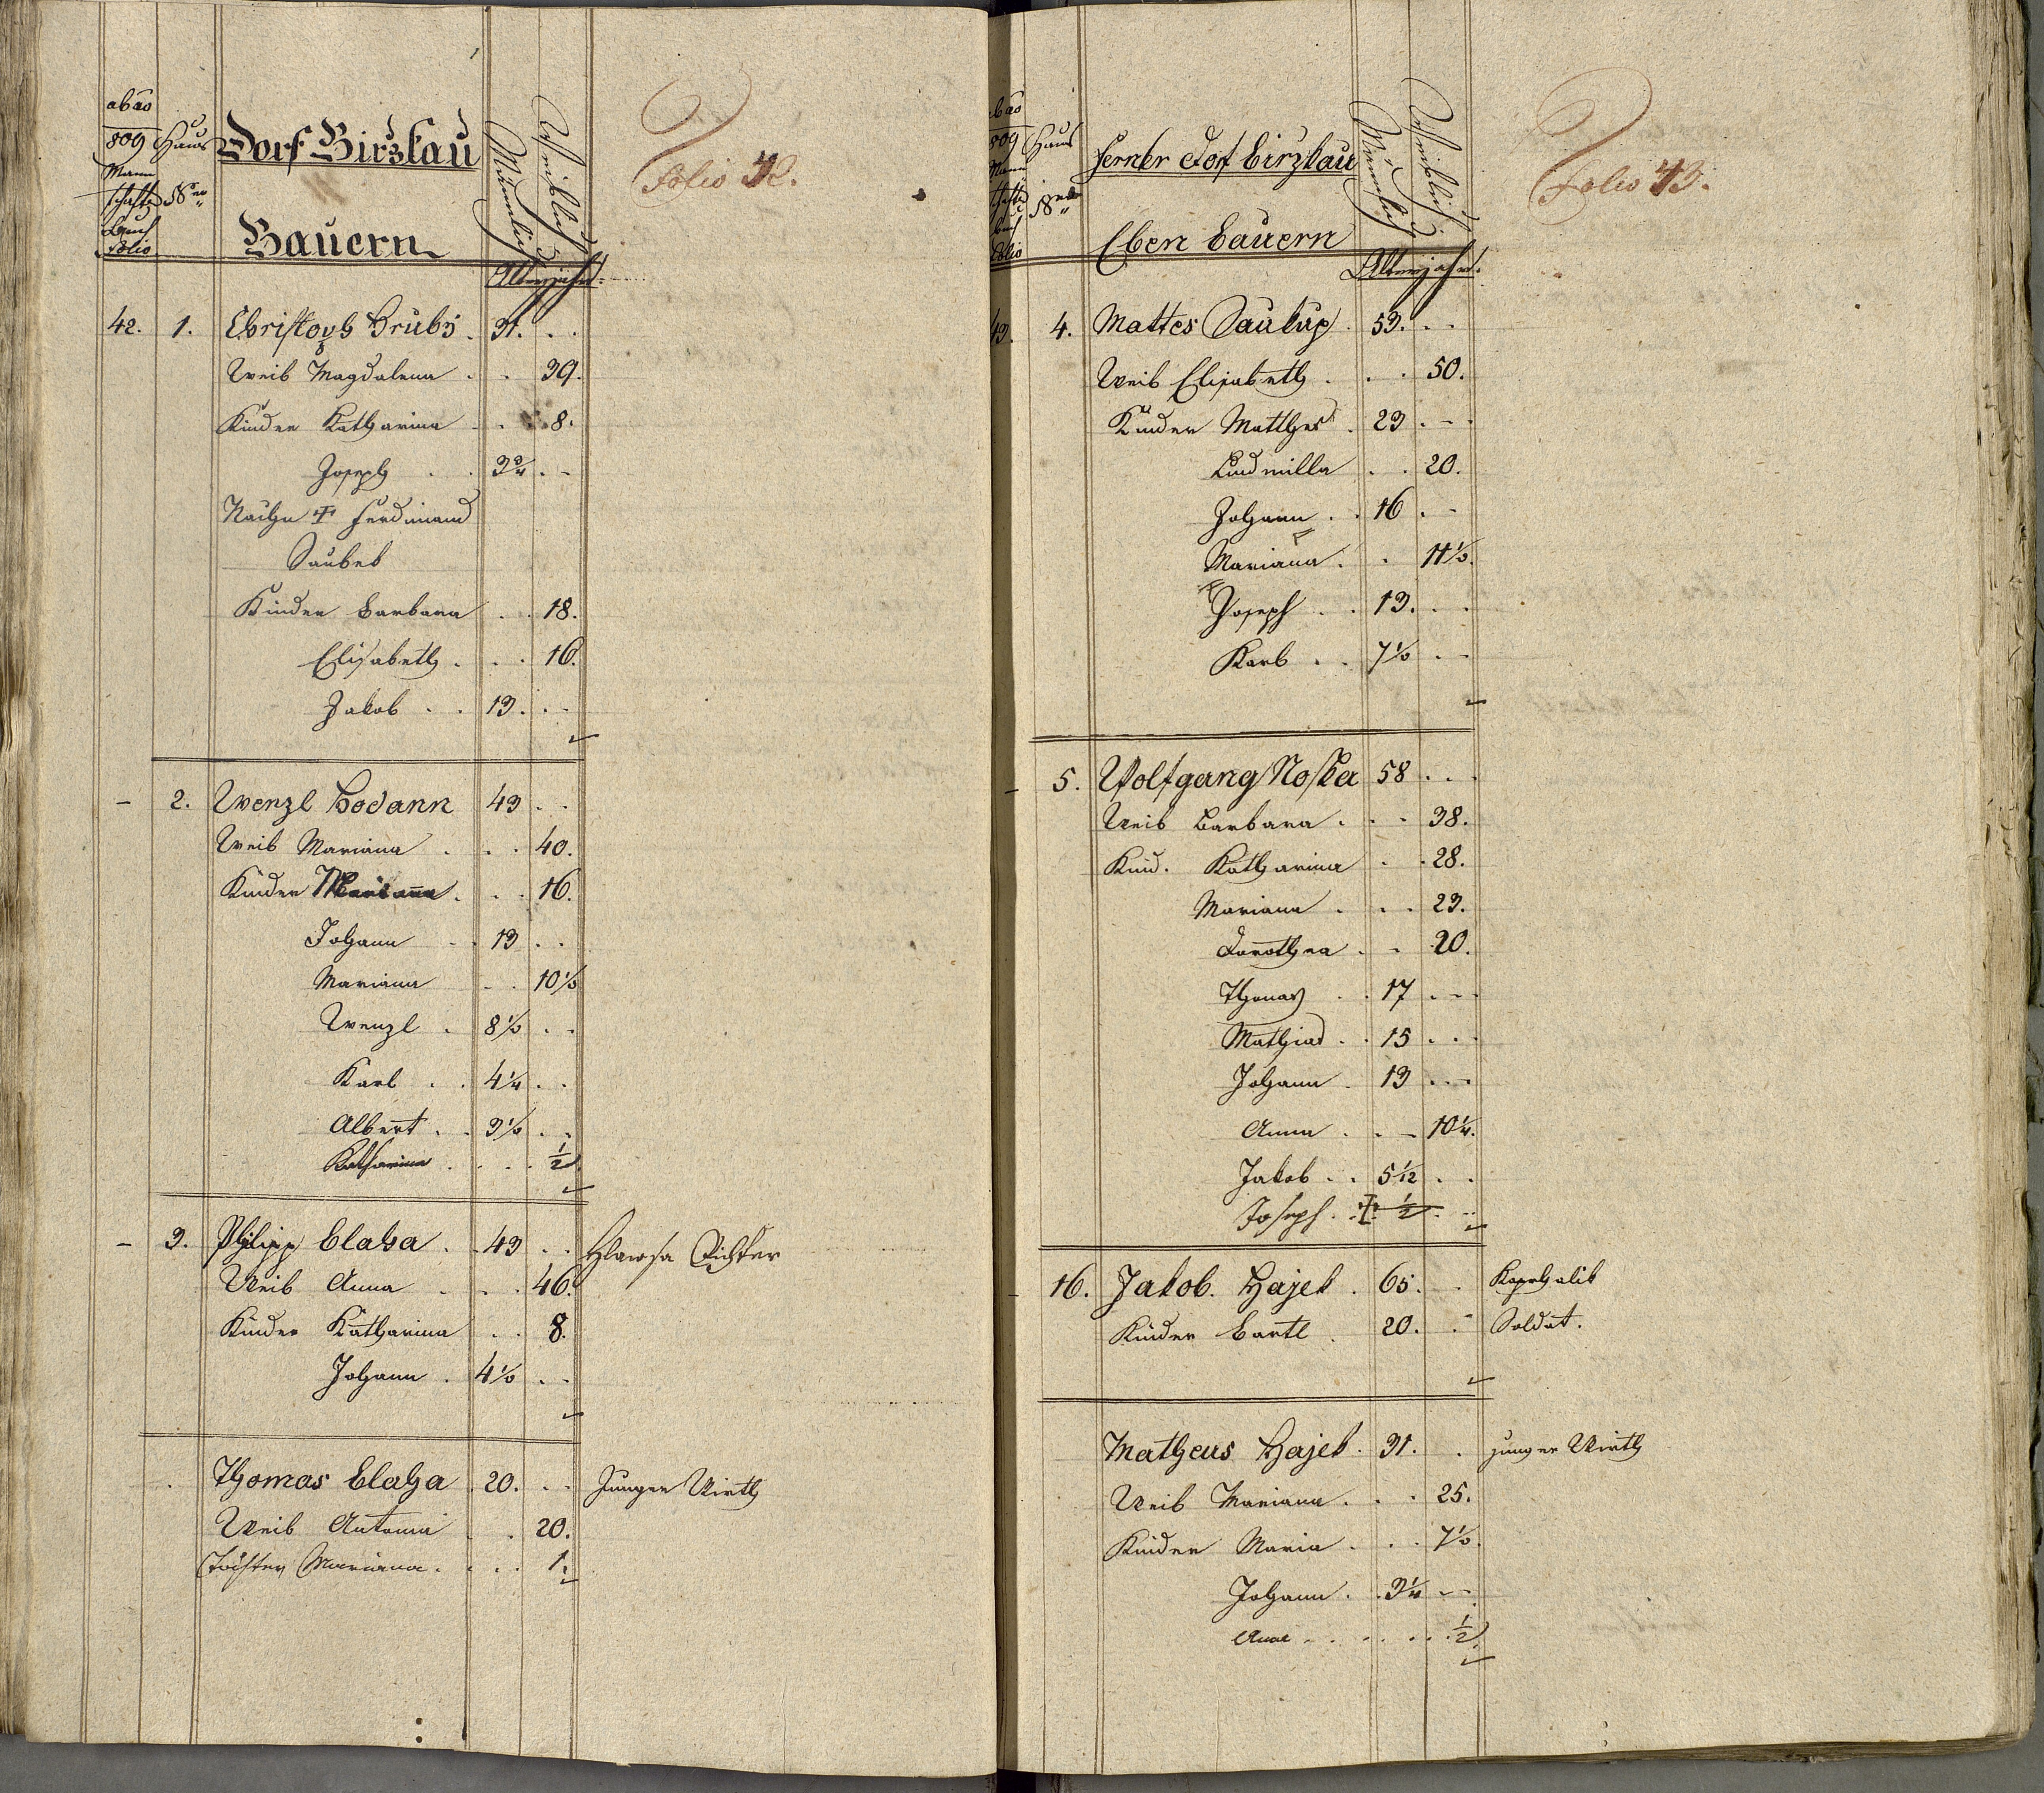 ab aō
809
Mann
schafts
Buch
Folio
Haus
Nren
Dorf Birzkau
Bauern
Männlich
Weiblich
Altersjahre
Folio 42.
42. 1. Christoph Hrubý . 31. . .
Weib Magdalena . . 39.
Kinder Katharina . . 8.
Joseph . . 3 3/4 . .
Nach ✝ Ferdinand
Saubek
Kinder Barbara . . 18.
Elisabeth . . . 16.
Jakob . . 13. . .
– 2. Wenzl Hodann 43 . .
Weib Mariana . . . 40.
Kinder Mariana . . . 16.
Johann . . 13 . .
Mariana . . 10 1/2
Wenzl . 8 1/2 . .
Karl . . 4 1/4 . .
Albert . . 3 1/2 . .
Katharina . . . . 1/2
– 3. Philipp Blaha . . 43 . . Hlawsa Richter
Weib Anna . . . 46.
Kinder Katharina . . 8.
Johann . 4 1/2 . .
Thomas Blaha . 20. . . Junger Wirth
Weib Antonia . . 20.
Tochter Mariana . . . . 1.
ab aō
809
Mann
schafts
buch
Folio
Haus
Nren
Ferner Dorf Birzkau
Eben Bauern
Männlich
Weiblich
Altersjahre.
Folio 43.
43. 4. Mattes Saukup . 53. . .
Weib Elisabeth . . . 50.
Kinder Matthes . 23 . . .
Ludmilla . . 20.
Johann . . 16 . .
Mariana . . 11 1/2.
Joseph . . 13. . .
Karl . . 7 1/2 . .
– 5. Wolfgang Noska 58 . . .
Weib Barbara . . . 38.
Kind. Katharina . . 28.
Mariana . . . 23.
Dorothea . . 20.
Thomas . . 17 . . .
Mathias . . 15 . . .
Johann . 13 . . .
Anna . . . 10 1/4.
Jakob . . 5 1/12 . .
Joseph . . ✝ 1/2 . .
– 16. Jakob Hajek . 65. . Kaphalik
Kinder Bartl . 20. . Soldat.
Matheus Hajek . 31. . junger Wirth
Weib Mariana . . . 25.
Kinder Maria . . . 7 1/2.
Johann . . 3 1/4 . .
Anna . . . . . . 1/2.